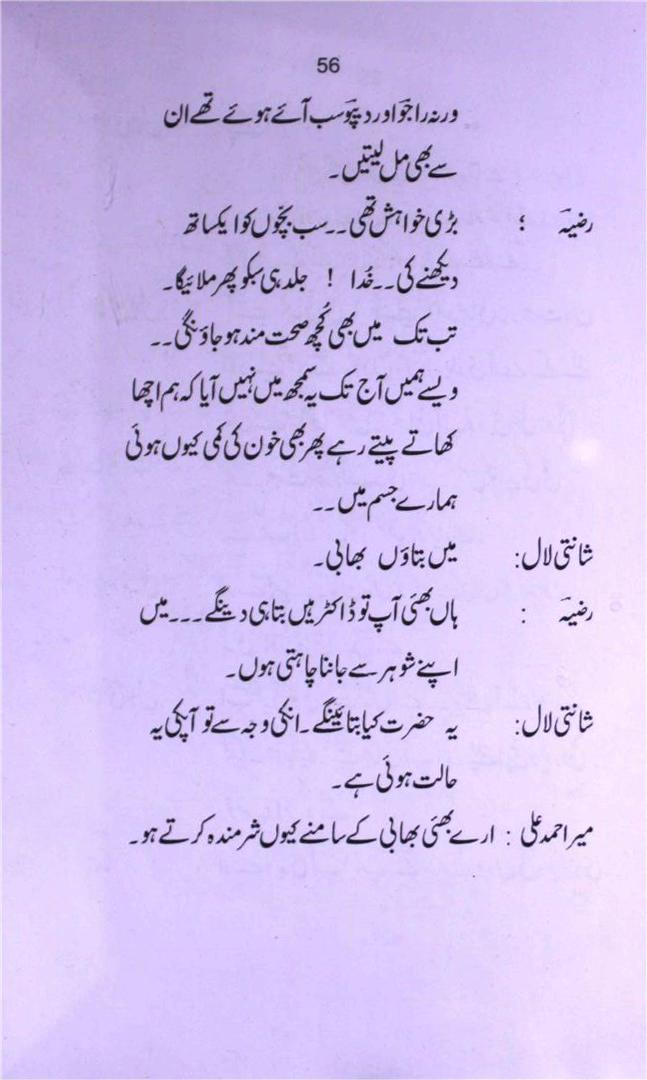 56
ورنہ راجوَ اور دپّو سب آئے ہوئے تھے ان
سے بھی مل لیتیں۔
رضیہَ ؛ بڑی خواہش تھی۔۔سب بچّوں کو ایکساتھ
دیکھنے کی۔۔خُدا ! جلد ہی سبکو پھر ملائیگا۔
تب تک میں بھی کُچھ صحت مند ہوجاؤنگی۔۔
ویسے ہمیں آج تک یہ سمجھ میں نہیں آیا کہ ہم اچھا
کھاتے پیتے رہے پھر بھی خون کی کمی کیوں ہوئی
ہمارے جسم میں۔۔
شانتی لال: میں بتاؤں بھابی۔
رضیہَ : ہاں بھئی آپ تو ڈاکٹر ہیں بتا ہی دینگے۔۔۔میں
اپنے شوہر سے جاننا چاہتی ہوں۔
شانتی لال: یہ حضرت کیا بتائینگے۔انکی وجہ سے تو آپکی یہ
حالت ہوئی ہے۔
میر احمد علی : ارے بھئی بھابی کے سامنے کیوں شرمندہ کرتے ہو۔